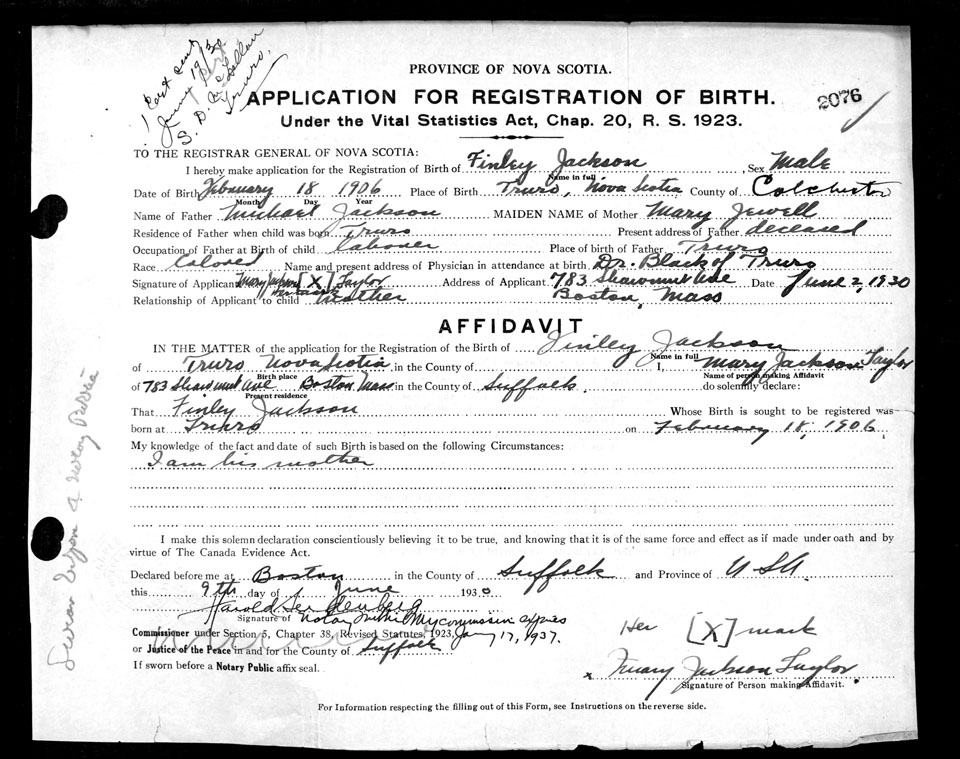 1 Cert sent
June 19/30
S. D. McLellan
Truro.
PROVINCE OF NOVA SCOTIA.
APPLICATION FOR REGISTRATION OF BIRTH.
2076
Under the Vital Statistics Act, Chap. 20, R. S. 1923.
TO THE REGISTRAR GENERAL OF NOVA SCOTIA:
I hereby make application for the Registration of Birth of Finley Jackson, Sex Male
Name in full
Date of Birth February 18 1906 Place of Birth Truro, Nova Scotia County of Colchester
Month Day Year
Name of Father Michael Jackson MAIDEN NAME of Mother Mary Jewell
Residence of Father when child was born Truro Present address of Father deceased
Occupation of Father at Birth of child laborer Place of birth of Father Truro
Race Colored Name and present address of Physician in attendance at birth Dr. Black of Truro
Signature of Applicant Mary Jackson [X] Taylor Address of Applicant 783 Shawmut Ave Date June 2, 1930
her mark
Relationship of Applicant to child Mother Boston, Mass
AFFIDAVIT
IN THE MATTER of the application for the Registration of the Birth of Finley Jackson
Name in full
of Truro Nova Scotia in the County of I, Mary Jackson Taylor
Birth place Name of person making Affidavit
of 783 Shawmut Ave Boston Mass in the County of Suffolk do solemnly declare:
Present residence
That Finley Jackson Whose Birth is sought to be registered was
born at Truro on February 18, 1906
My knowledge of the fact and date of such Birth is based on the following Circumstances:
I am his mother
And I make this solemn declaration conscientiously believing it to be true, and knowing that it is of the same force and effect as if made under oath and by
virtue of The Canada Evidence Act.
Declared before me at Boston in the County of Suffolk and Province of USA
this 9th day of June 1930
Harold
Signature of Notary Public My commission expires
Commissioner under Section 5, Chapter 38, Revised Statutes, 1923, Jany 17, 1937.
or Justice of the Peace in and for the County of Suffolk
If sworn before a Notary Public affix seal.
Her [X] mark
x Mary Jackson Taylor
Signature of Person making Affidavit.
For Information respecting the filling out of this Form, see Instructions on the reverse side.